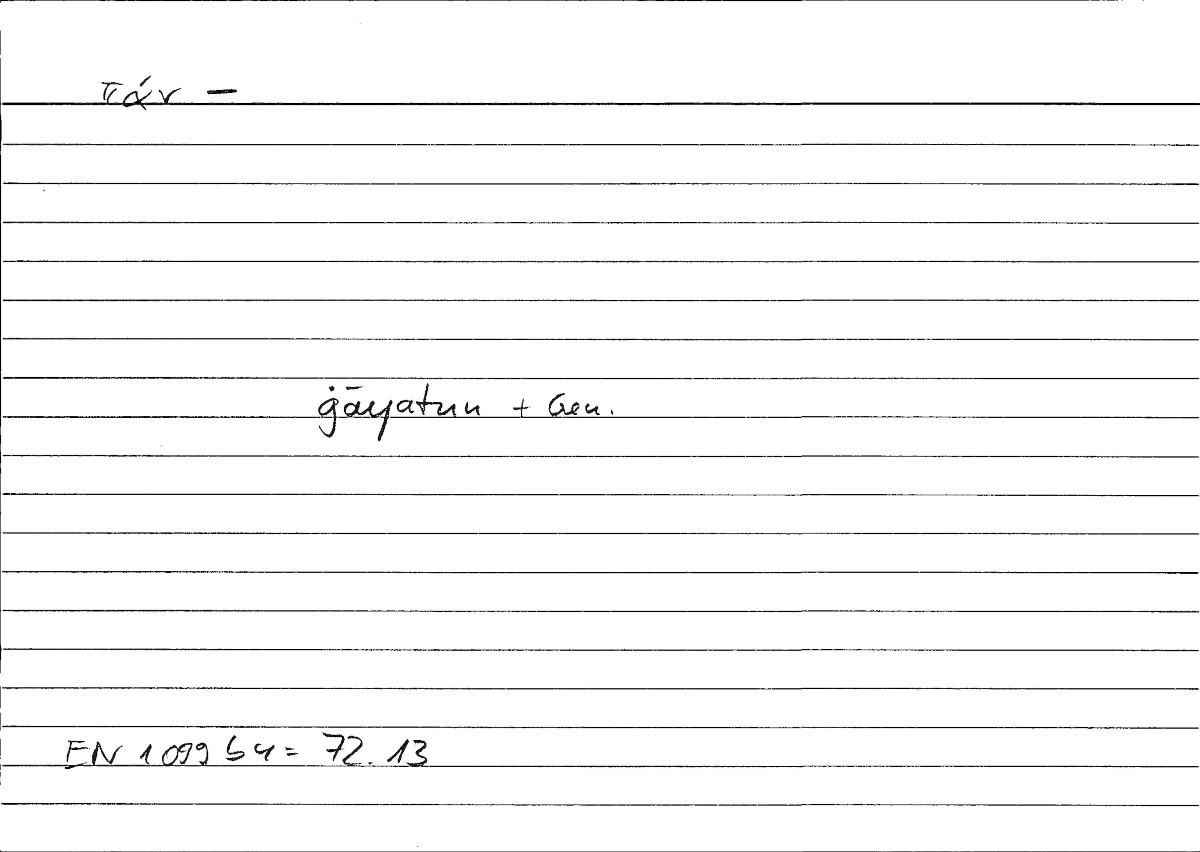 πάν –
ġāyatun + Gen.
EN 1099 b4 = 72.13